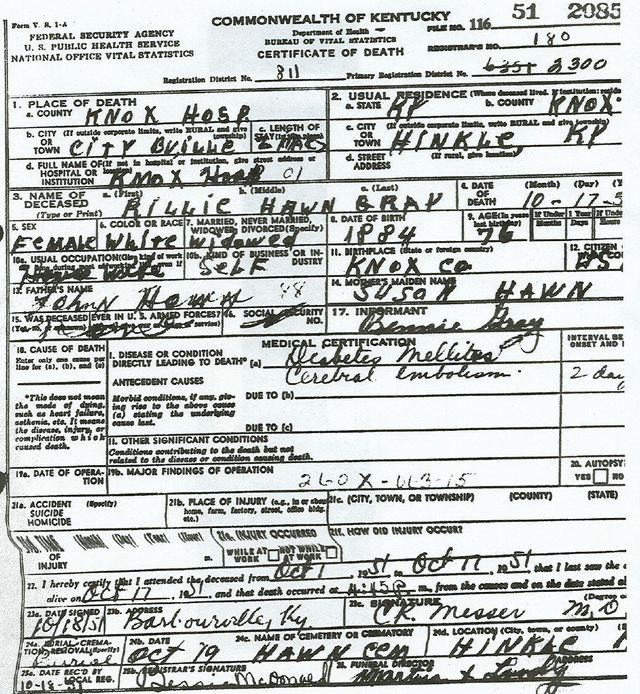 Form V. S. 1-A
COMMONWEALTH OF KENTUCKY
FILE NO. 116 51 2085
FEDERAL SECURITY AGENCY
Department of Health
U. S. PUBLIC HEALTH SERVICE
BUREAU OF VITAL STATISTICS
REGISTRAR'S NO. 180
NATIONAL OFFICE VITAL STATISTICS
CERTIFICATE OF DEATH
Registration District No. 811 Primary Registration District No. 6351 2300
1. PLACE OF DEATH
a. COUNTY KNOX HOSP
2. USUAL RESIDENCE (Where deceased lived. If institution: resid
a. STATE KY b. COUNTY KNOX
b. CITY (If outside corporate limits, write RURAL and give township) OR TOWN CITY BVILLE
c. LENGTH OF STAY (in this place)
c. CITY (If outside corporate limits, write RURAL and give township) OR TOWN HINKLE, KY
d. FULL NAME OF (If not in hospital or institution, give street address or HOSPITAL OR INSTITUTION KNOX Hosp 01
d. STREET (If rural, give location) ADDRESS
3. NAME OF DECEASED (Type or Print) a. (First) b. (Middle) c. (Last)
HAWN GRAY
4. DATE OF DEATH (Month) (Day) (Y
10-17-5
5. SEX Female
6. COLOR OR RACE White
7. MARRIED, NEVER MARRIED, WIDOWED, DIVORCED (Specify) widowed
8. DATE OF BIRTH 1884
9. AGE (In years last birthday) 76 If Under 1 Year Months Days If Unde Hours
10a. USUAL OCCUPATION (Give kind of work House wife
10b. KIND OF BUSINESS OR INDUSTRY Self
11. BIRTHPLACE (State or foreign country) KNOX CO
12. CITIZEN
13. FATHER'S NAME John Hawn 48
14. MOTHER'S MAIDEN NAME SUSAN HAWN
15. WAS DECEASED EVER IN U. S. ARMED FORCES?
16. SOCIAL SECURITY NO.
17. INFORMANT Bennie Gray
MEDICAL CERTIFICATION
18. CAUSE OF DEATH
Enter only one cause per line for (a), (b), and (c)
I. DISEASE OR CONDITION DIRECTLY LEADING TO DEATH* (a) Diabetes Mellitus
Cerebral Embolism
INTERVAL BE
ONSET AND
2 da
*This does not mean the mode of dying, such as heart failure, asthenia, etc. It means the disease, injury, or complication which caused death.
ANTECEDENT CAUSES
Morbid conditions, if any, giving rise to the above cause (a) stating the underlying cause last.
DUE TO (b)
DUE TO (c)
II. OTHER SIGNIFICANT CONDITIONS
Conditions contributing to the death but not related to the disease or condition causing death.
19a. DATE OF OPERATION
19b. MAJOR FINDINGS OF OPERATION
260X-
20. AUTOPSY
YES NO
21a. ACCIDENT SUICIDE HOMICIDE (Specify)
21b. PLACE OF INJURY (e.g., in or about home, farm, factory, street, office bldg. etc.)
21c. (CITY, TOWN, OR TOWNSHIP) (COUNTY) (STATE)
21d. TIME OF INJURY (Month) (Day) (Year) (Hour) m.
21e. INJURY OCCURRED
WHILE AT WORK NOT WHILE AT WORK
21f. HOW DID INJURY OCCUR?
22. I hereby certify that I attended the deceased from Oct 1, 1951 to Oct 17, 1951 that I last saw the
alive on Oct 17, 1951, and that death occurred at 4:45P m., from the causes and on the date stated
23a. DATE SIGNED 10/18/51
23b. ADDRESS Barbourville, Ky
23c. SIGNATURE CR. Messer M.D. (Degree o
24a. BURIAL, CREMATION, REMOVAL (Specify) Burial
24b. DATE Oct 19
24c. NAME OF CEMETERY OR CREMATORY HAWN CEM
24d. LOCATION (City, town, or county) HINKLE
25a. DATE REC'D BY LOCAL REG. 10-18-51
25b. REGISTRAR'S SIGNATURE Jessie McDonald
26. FUNERAL DIRECTOR ADDRESS